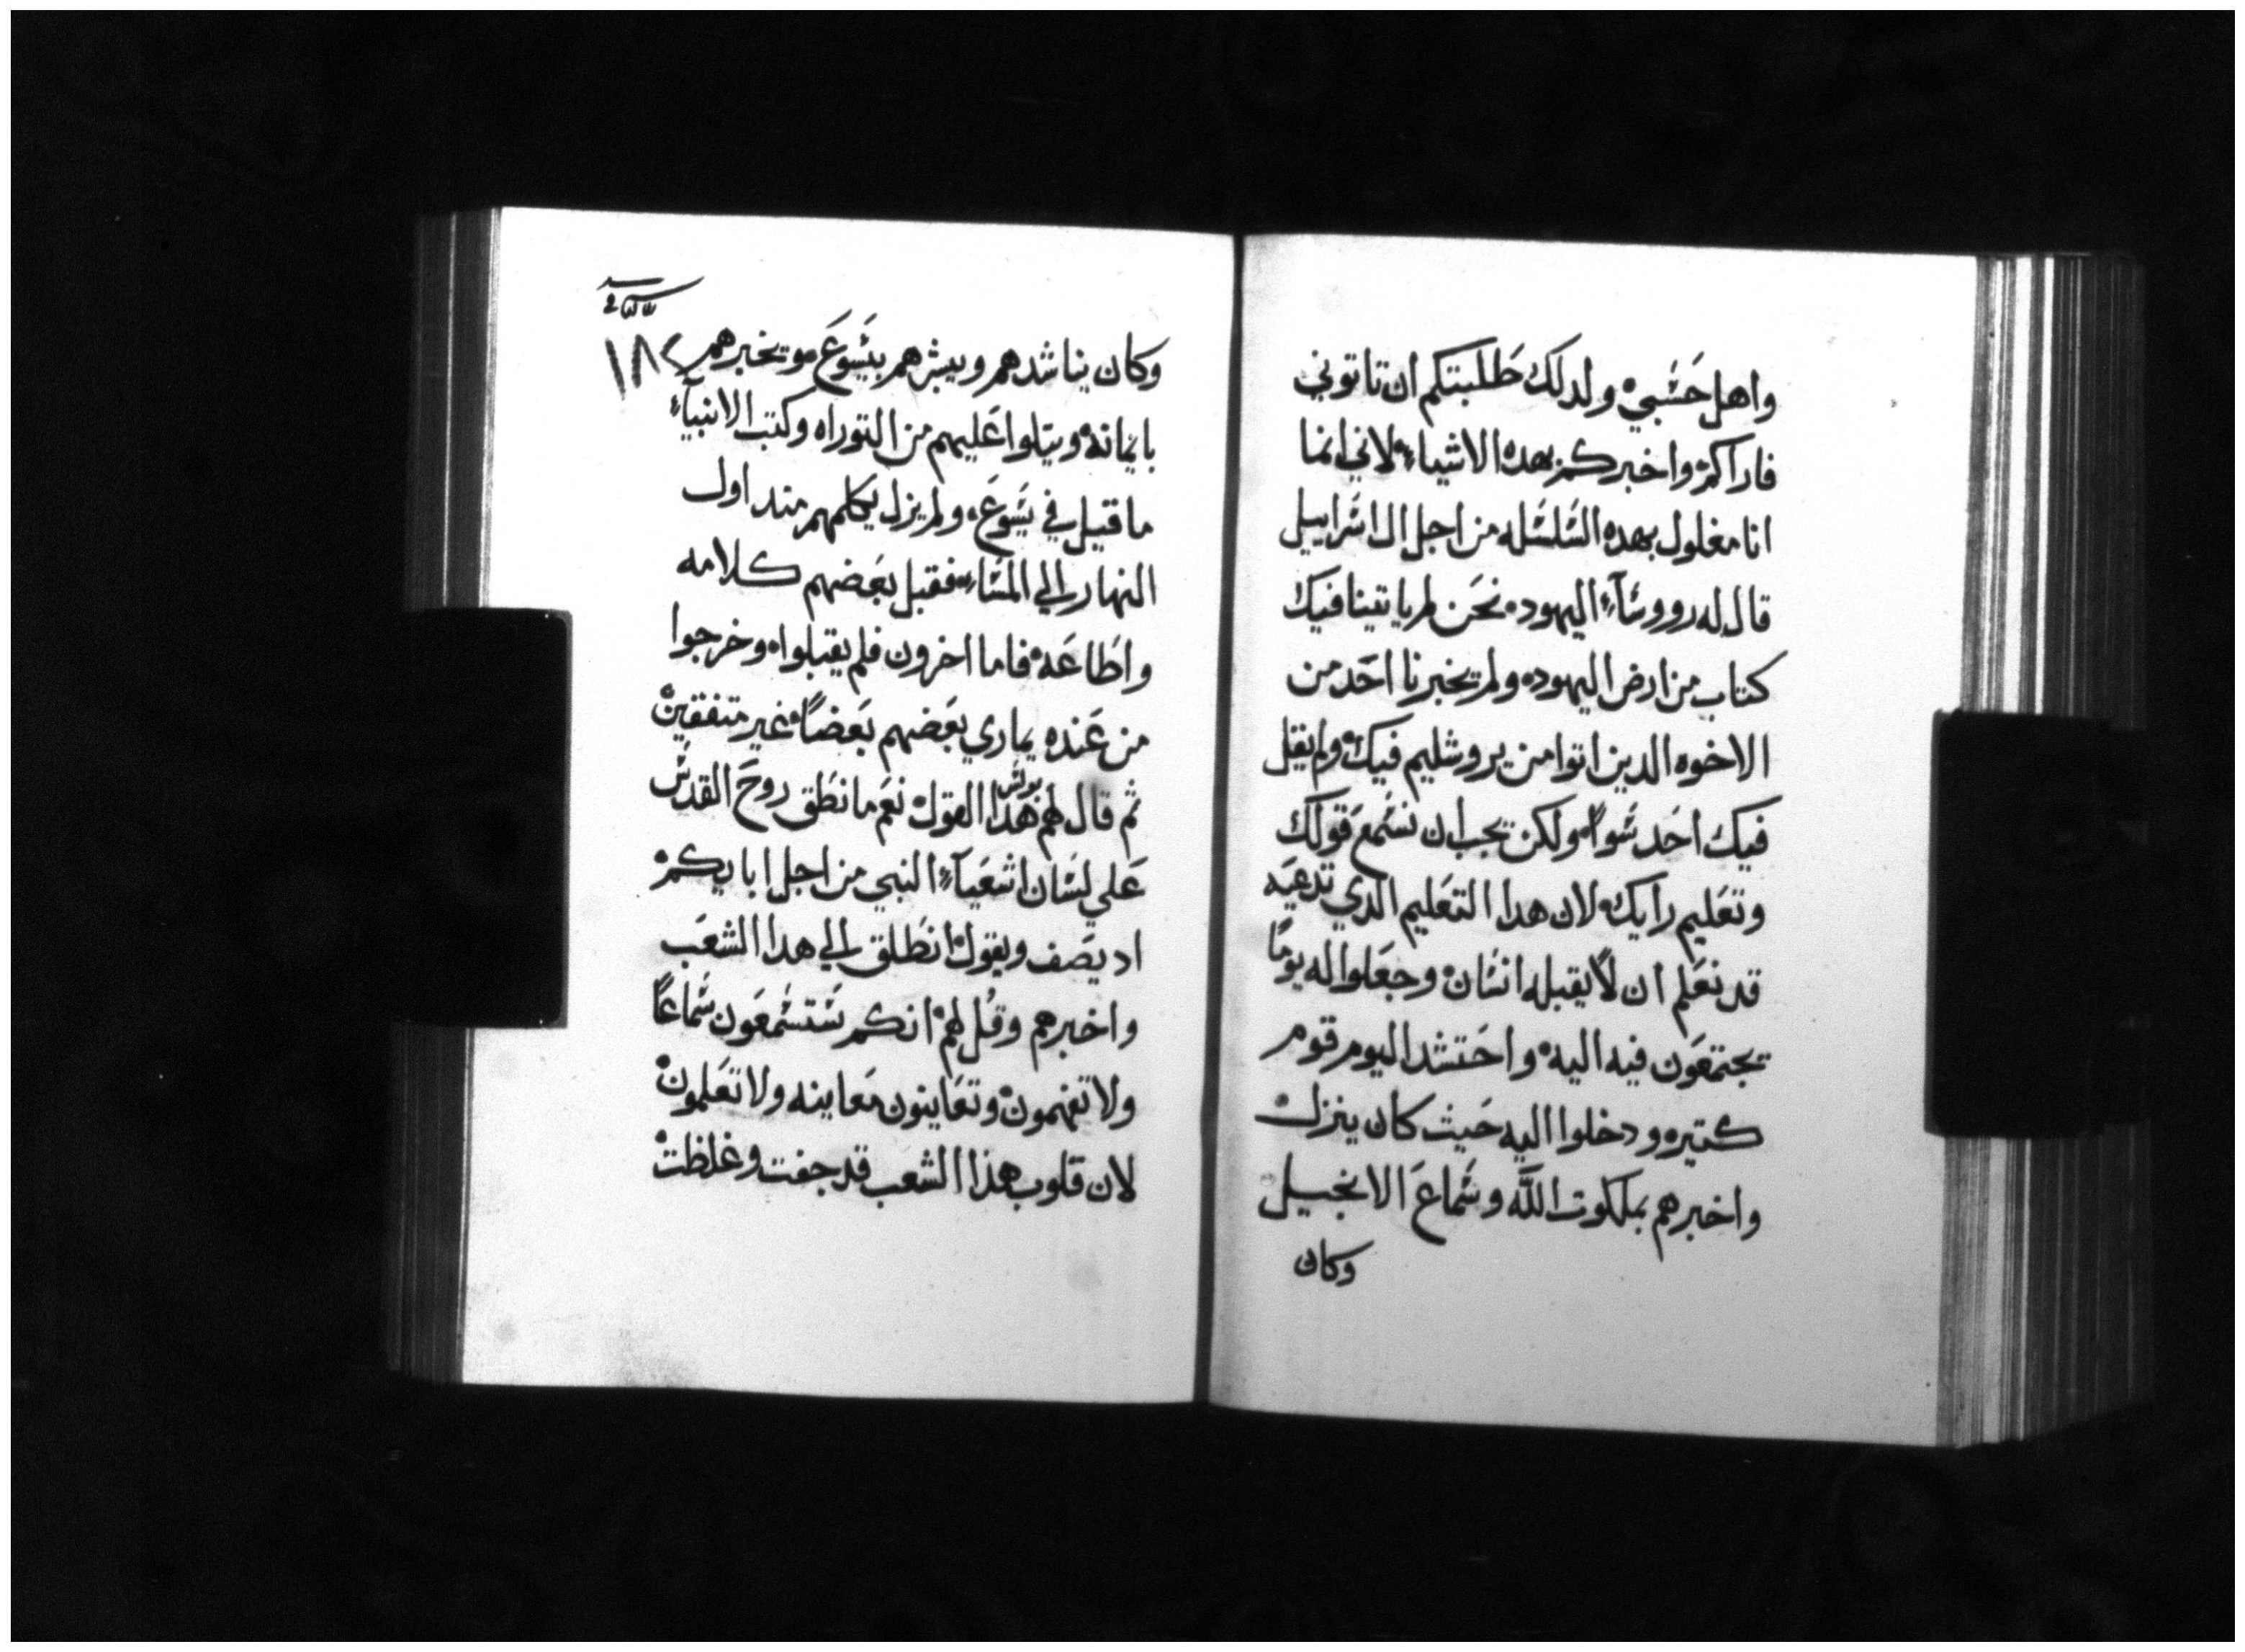 واهل حَسَبي ولدلك طَلبتكم ان تاتوني
فاراكم واخبركم بهده الاشياء لاني انما
انا مغلول بهده السَلسَله من اجل ال اسَراييل
قال له رووسَآء اليهود نحَن لم ياتينا فيك
كتاب من ارض اليهوده ولم يخبرنا احَد من
الاخوه الدين اتوا من يروشليم فيك ولم يقل
فيك احَد سَواً ولكن يجب ان نسَمعَ قولك
وتعَليم رايك لان هدا التعَليم الدي تدعيَه
قد نعَلم ان لا يقبله انسَان وجعَلوا له يومًا
يجتمعَون فيه اليه واحَتشد اليوم قوم
كتيره ودخلوا اليه حَيث كان ينزل
واخبرهم بملكوت اللَّه وسَماعَ الانجيل
وكان
١٨٢
وكان يناشدهم ويبشرهم بيَسَوعَ ويخبرهم
بايمانه ويتلوا عَليهم من التوراه وكتب الانبيآء
ما قيل في يسَوعَ ولم يزل يكلمهم مند اول
النهار الي المسَاء فقبل بعَضهم كلامه
واطَاعَه فاما اخرون فلم يقبلوا وخرجوا
من عَنده يماري بعَضهم بعَضًا غير متفقين
ثم قال لهم بولس هَدا القول نعَم ما نطَق روحَ القدسَ
عَلي لسَان اشعَيآء النبي من اجل اباييكم
اد يصَف ويقول انطَلق الي هدا الشعَب
واخبرهم وقُل لهم انكم سَتسَمعَون سَماعًا
ولا تفهمون وتعَاينون معَاينه ولا تعَلمون
لان قلوب هذا الشعب قد جفت وغلظت